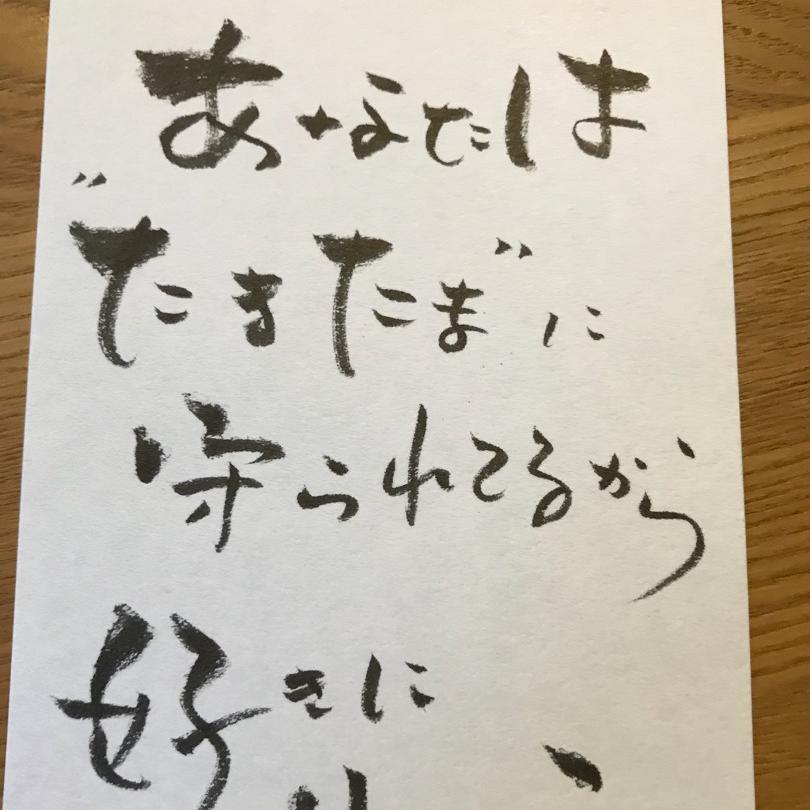 あなたは
"たまたま"に
守られてるから
好きに